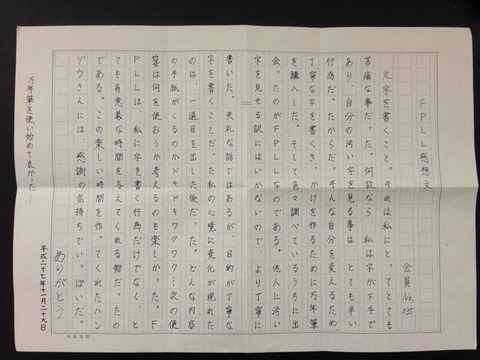 ＦＰＬＬ感想文
会員No.035
文字を書くこと。それは私にとってとても
苦痛な事だった。何故なら、私は字が下手で
あり、自分の汚い字を見る事は、とても辛い
行為だったからだ。そんな自分を変えるため、
丁寧な字を書くきっかけを作るために万年筆
を購入した。そして色々調べているうちに出
会ったのがＦＰＬＬなのである。他人に汚い
字を見せる訳にはいかないので、より丁寧に
書いた。失礼な話ではあるが、目的が丁寧な
字を書くことだった私の心境に変化が現れた
のは、一週目を出した後だった。どんな内容
の手紙がくるのかドキドキワクワク…次の便
箋は何を使おうか考えるのも楽しかった。Ｆ
ＰＬＬは、私に字を書く行為だけでなく、と
ても有意義な時間を与えてくれる物だったの
である。この楽しい時間を作ってくれたハン
ゾウさんには、感謝の気持ちでいっぱいだ。
ありがとう
平成二十七年十一月二十九日
万年筆を使い始めて良かった…